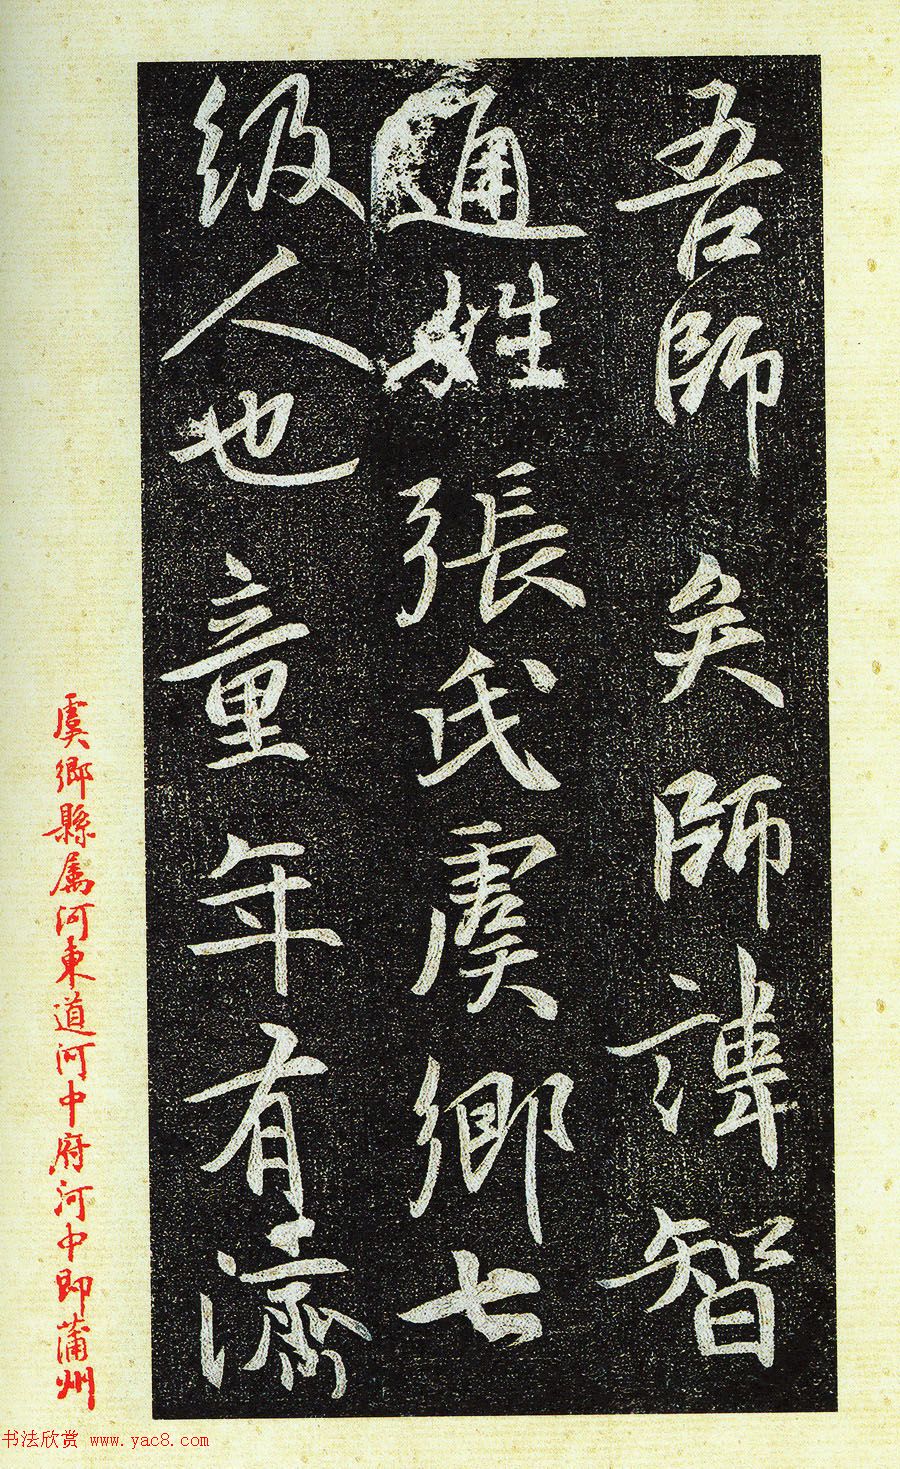 吾師矣師諱智
通姓張氏虞鄉七
级人也童年有濟
虞鄉縣属河東道河中府河中即蒲州
书法欣赏 www.yac8.com